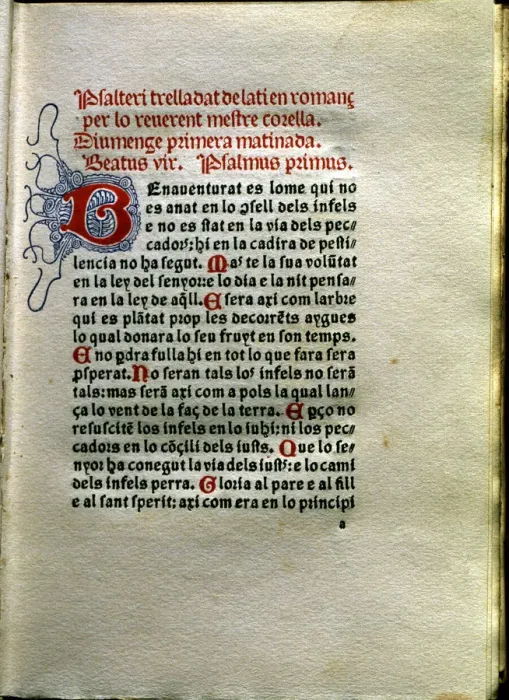 Psalteri trelladat de lati en romanç
per lo reuerent mestre corella.
Diumenge primera matinada.
Beatus vir. Psalmus primus.
BEnauenturat es lome qui no
es anat en lo ↄsell dels infels
e no es stat en la via dels pec⸗
cadors: hi en la cadira de pesti⸗
lencia no ha segut. Mas te la sua volūtat
en la ley del senyor: e lo dia e la nit pensa⸗
ra en la ley de aq̄ll. E sera axi com larbre
qui es plātat prop les decorrēts aygues
lo qual donara lo seu fruyt en son temps.
E no ꝑdra fulla hi en tot lo que fara sera
ꝓsperat. No seran tals los infels no serā
tals: mas serā axi com a pols la qual lan⸗
ça lo vent de la faç de la terra. E ꝑço no
resuscitē los infels en lo iuhi: ni los pec⸗
cadors en lo cōçili dels iusts. Que lo se⸗
nyor ha conegut la via dels iusts: e lo cami
dels infels perra. Gloria al pare e al fill
e al sant sperit: axi com era en lo principi
a